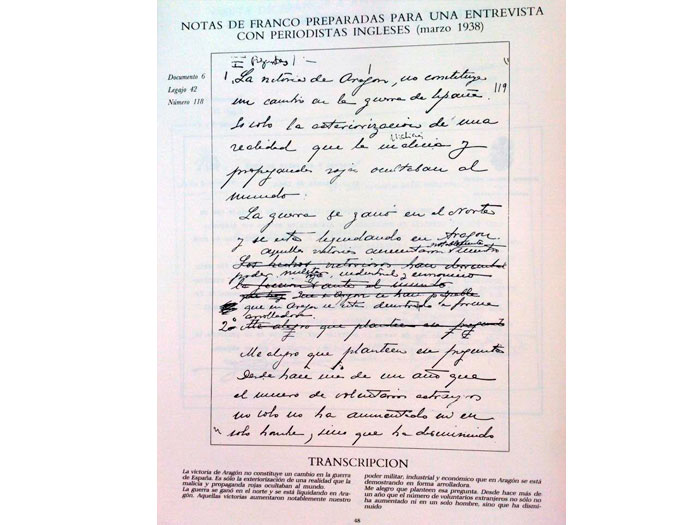 NOTAS DE FRANCO PREPARADAS PARA UNA ENTREVISTA
CON PERIODISTAS INGLESES (marzo 1938)
Documento 6
Legajo 42
Número 118
I Preguntas
119
1. La victoria de Aragón, no constituye
un cambio en la guerra de España.
Es solo la exteriorización de una
realidad que la malicia y
propagandas rojas ocultaban al
mundo.
La guerra se ganó en el Norte
y se está liquidando en Aragon
aquellas victorias aumentaron notablemente nuestro
Los hechos victoriosos han
poder militar, industrial y economico
ante el mundo
que en Aragon se está demostrando en forma
arrolladora.
2º Me alegro que planteen esa pregunta
Me alegro que planteen esa pregunta
Desde hace más de un año que
el numero de voluntarios extranjeros
no solo no ha aumentado ni en
un solo hombre, sino que ha disminuido
TRANSCRIPCION
La victoria de Aragón no constituye un cambio en la guerra
de España. Es sólo la exteriorización de una realidad que la
malicia y propaganda rojas ocultaban al mundo.
La guerra se ganó en el norte y se está liquidando en Ara-
gón. Aquellas victorias aumentaron notablemente nuestro
poder militar, industrial y económico que en Aragón se está
demostrando en forma arrolladora.
Me alegro que planteen esa pregunta. Desde hace más de
un año que el número de voluntarios extranjeros no sólo no
ha aumentado ni en un solo hombre, sino que ha dismi-
nuido
48